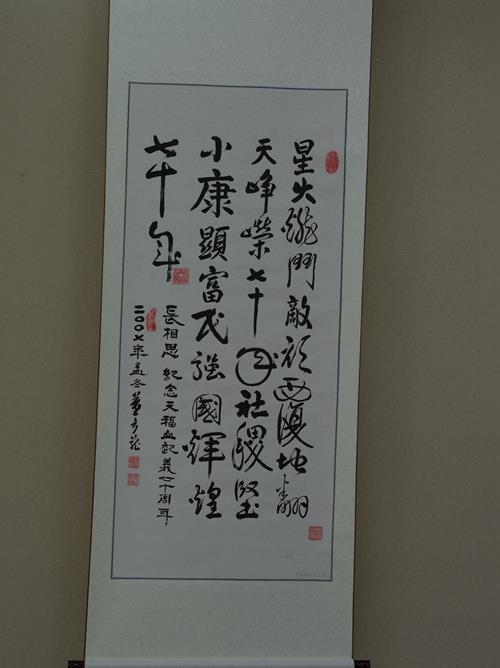 星火門敵覆地翻
天崢嶸七十年社稷堅
小康顯富民強國輝煌
七十年
長相思 紀念天福山起義七十周年
二00七年孟冬董